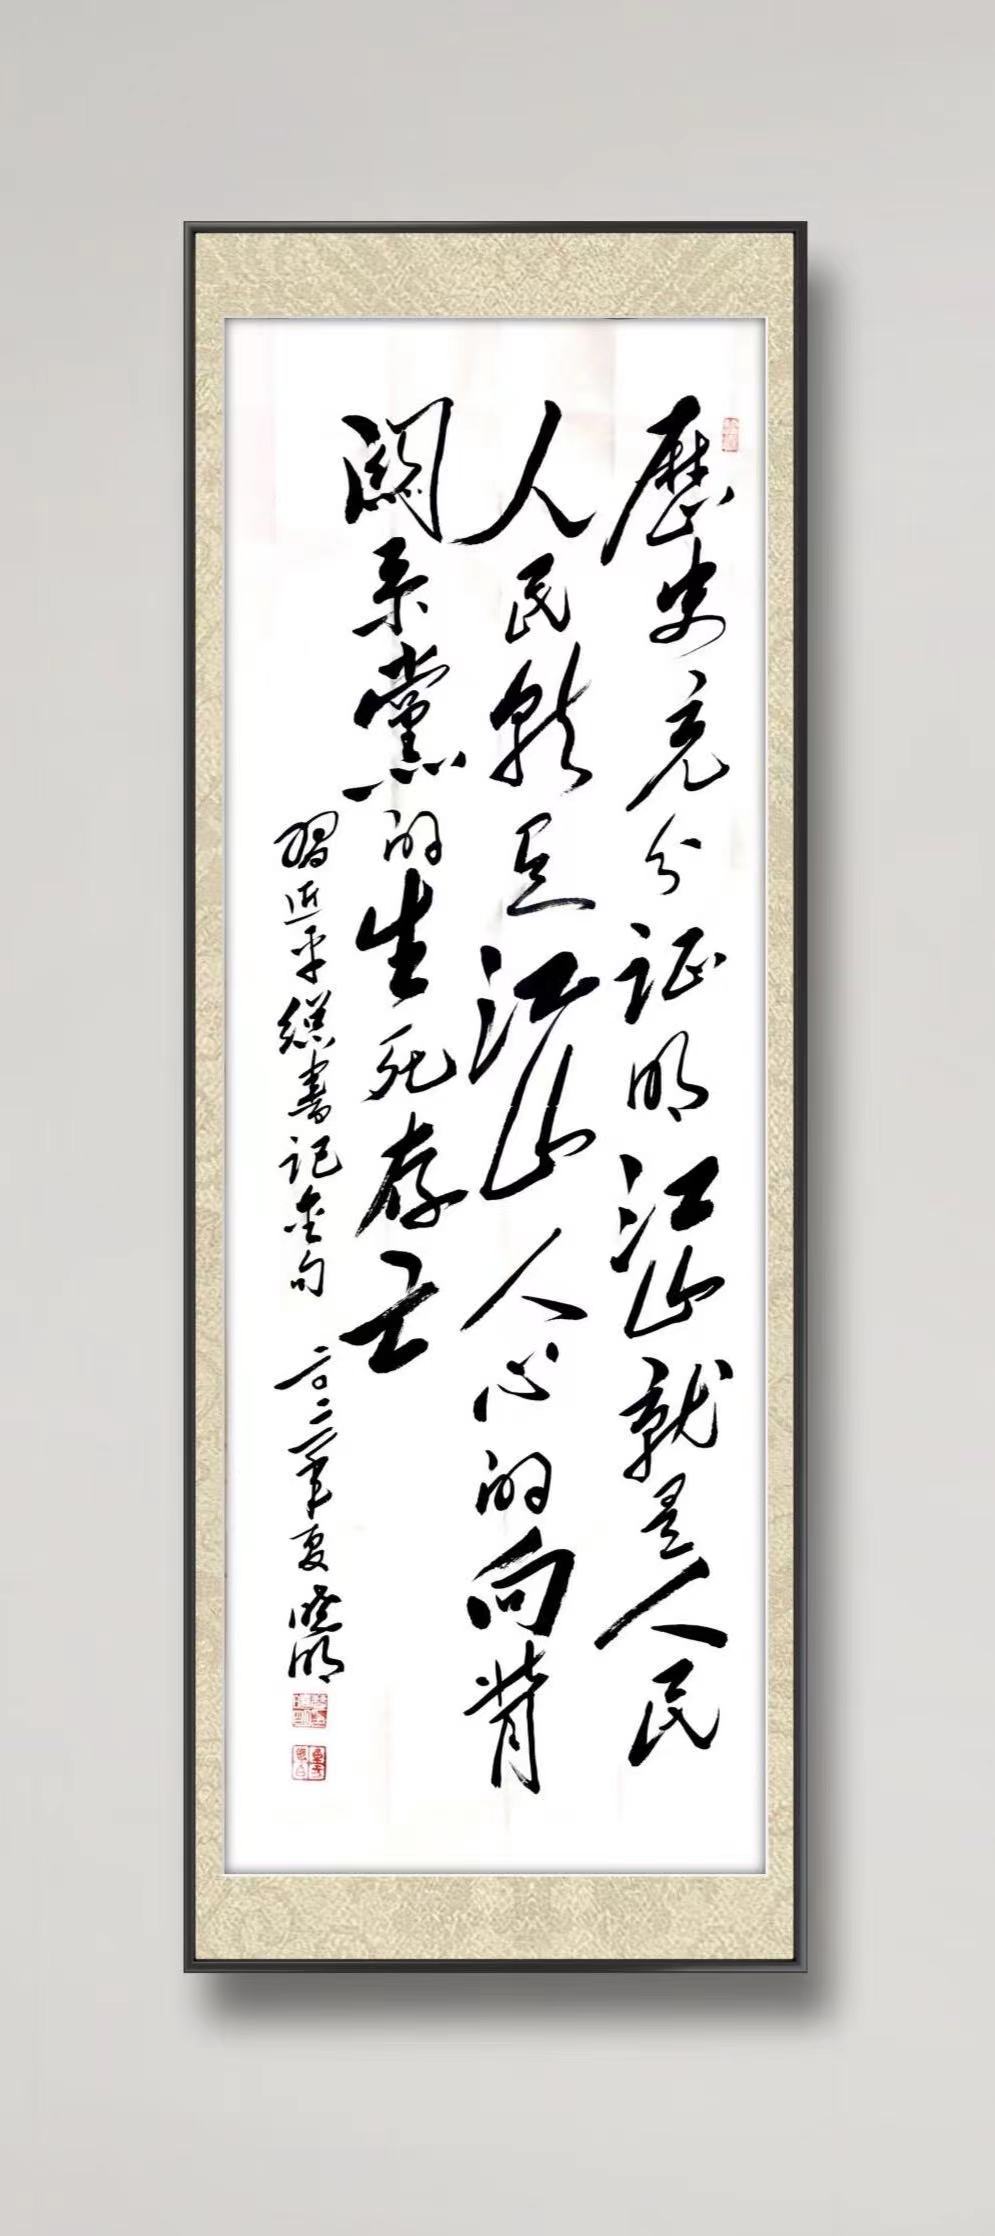 歷史充分证明江山就是人民
人民就是江山人心的向背
關系黨的生死存亡
習近平總書记金句
二〇二二年夏 曉明